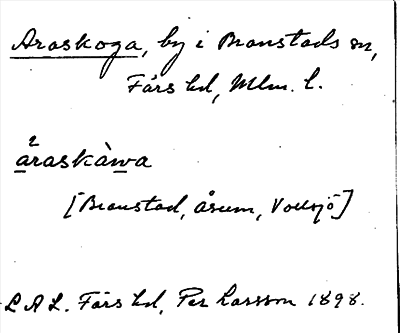 Araskoga, by i Branstads sn,
Färs hd, Mlm. l.
2
åraskàwa
[Branstad, åsum, Vollsjö]
L A L. Färs hd, Per Larsson 1898.